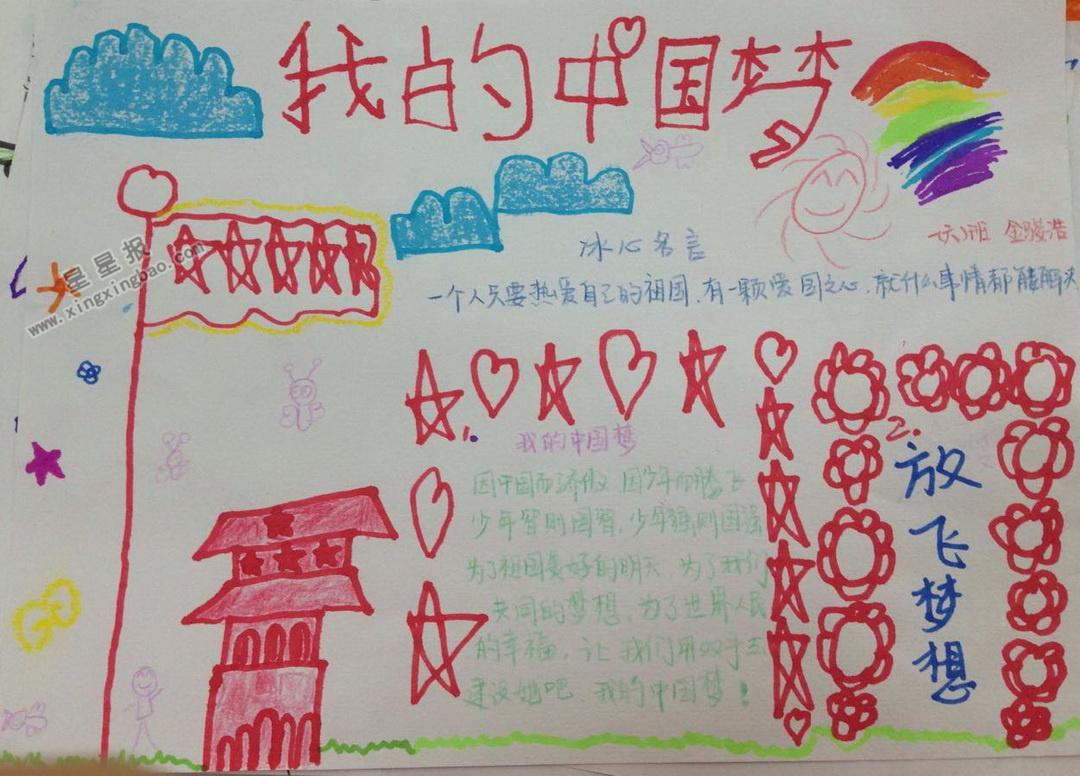 我的中国梦
六1班 金骏浩
冰心名言
一个人只要热爱自己的祖国,有一颗爱国之心,就什么事情都能解决
1.
我的中国梦
因中国而骄傲 因少年而腾飞
少年智则国智,少年强则国强
为了祖国美好的明天,为了我们
共同的梦想,为了世界人民
的幸福,让我们用双手去
建设她吧 我的中国梦!
2.
放飞梦想
星星报
www.xingxingbao.com